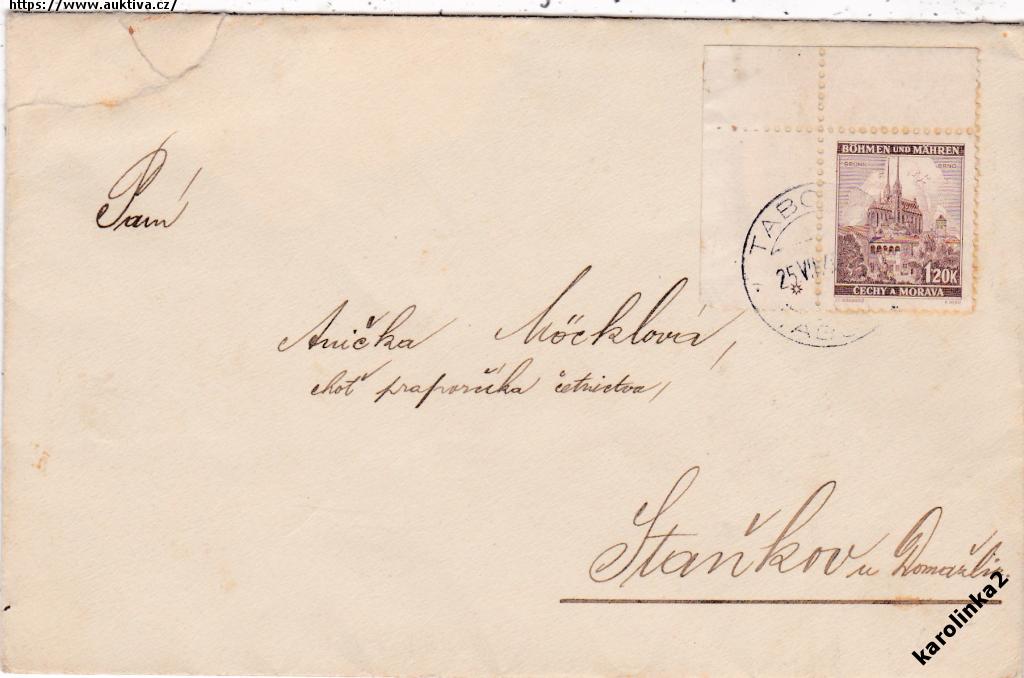 https://www.auktiva.cz/
Paní
BÖHMEN UND MÄHREN
BRÜNN BRNO
1.20K
ČECHY A MORAVA
TÁBO
25 VII
TÁBO
Anička Möcklová,
choť praporčíka četnictva,
Staňkov u Domažlic
karolinka2